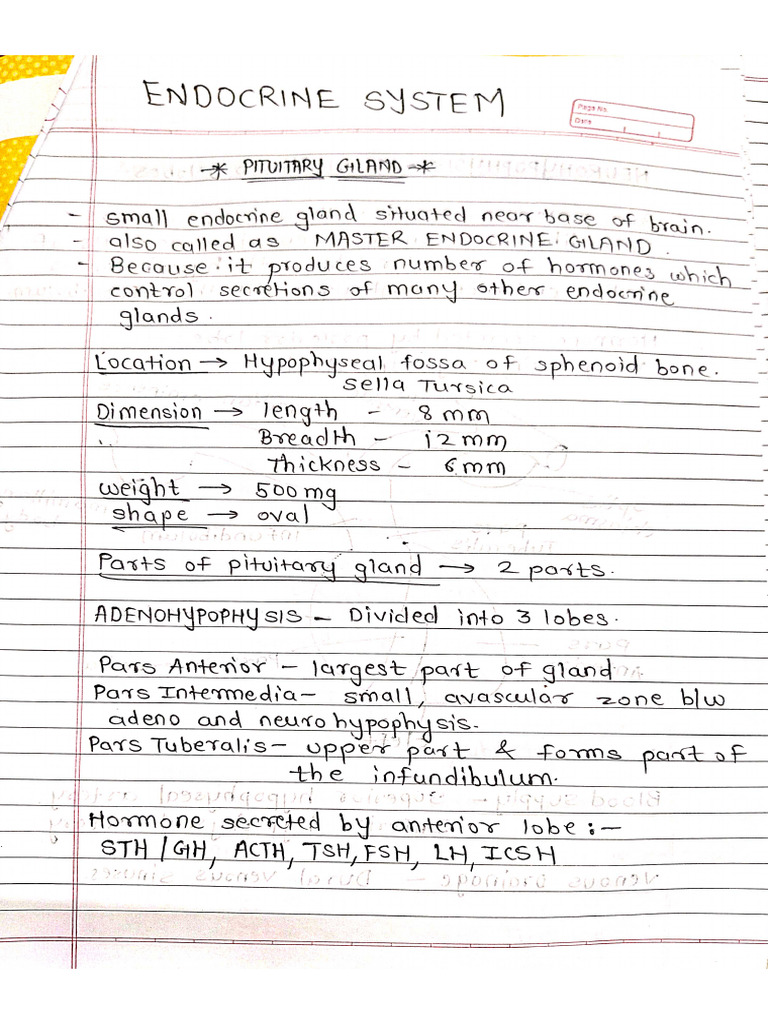 ENDOCRINE SYSTEM
Page No.
Date
-* PITUITARY GLAND -*
- small endocrine gland situated near base of brain.
- also called as MASTER ENDOCRINE GLAND.
- Because it produces number of hormones which
control secretions of many other endocrine
glands.
Location → Hypophyseal fossa of sphenoid bone.
Sella Tursica
Dimension → length - 8 mm
Breadth - 12 mm
Thickness - 6 mm
weight → 500 mg
shape → oval
Parts of pituitary gland → 2 parts.
ADENOHYPOPHYSIS - Divided into 3 lobes.
Pars Anterior - largest part of gland.
Pars Intermedia - small, avascular zone b/w
adeno and neurohypophysis.
Pars Tuberalis - upper part & forms part of
the infundibulum.
Hormone secreted by anterior lobe :-
STH/GH, ACTH, TSH, FSH, LH, ICSH